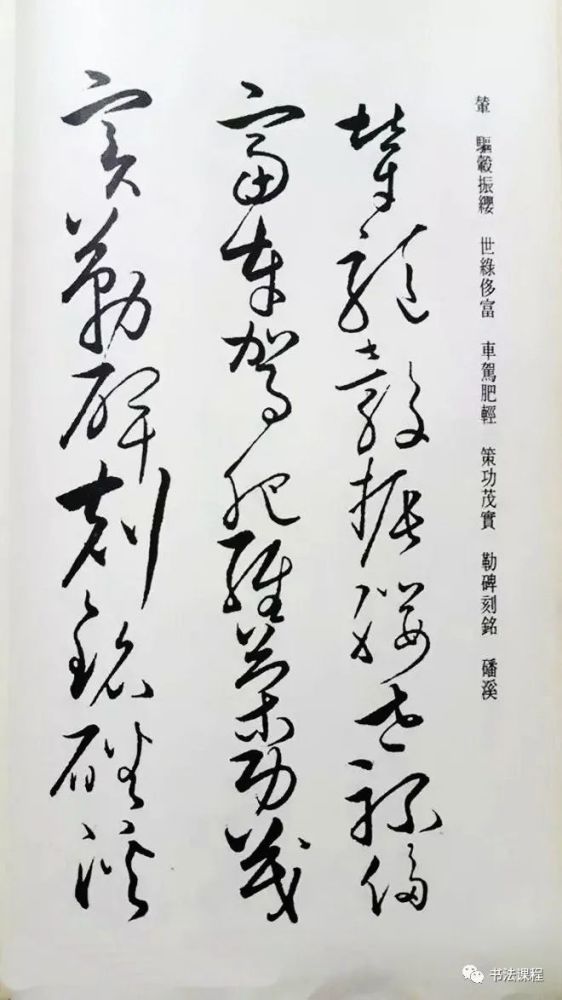 輦　驅轂振纓　世祿侈富　車駕肥輕　策功茂實　勒碑刻銘　磻溪
輦驅轂振纓世祿侈
富車駕肥輕策功茂
實勒碑刻銘磻溪
书法课程